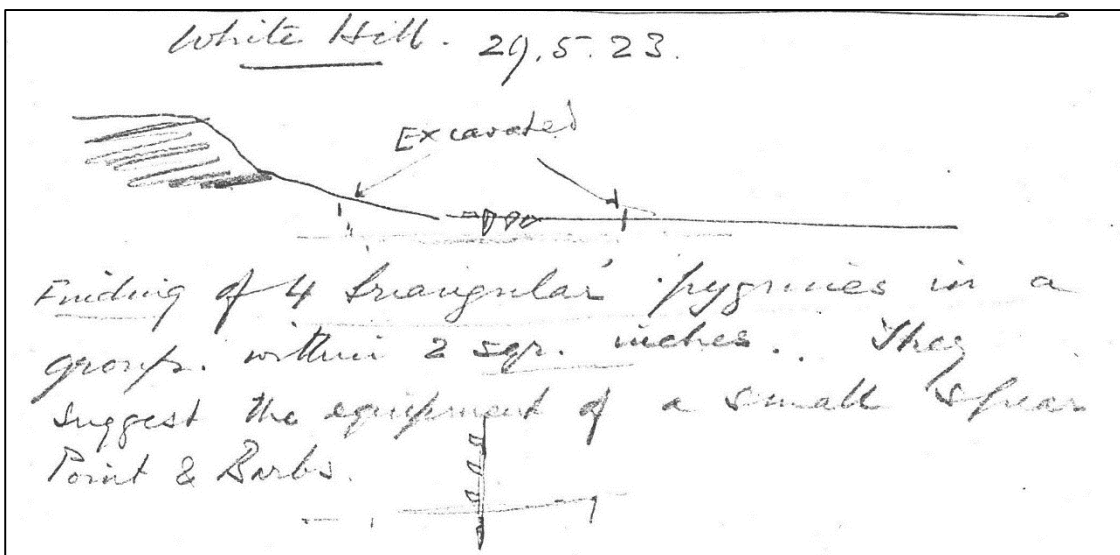 White Hill. 29.5.23.
Excavated
Finding of 4 triangular pygmies in a
group. within 2 sqr. inches.. They
suggest the equipment of a small spear
Point & Barbs.